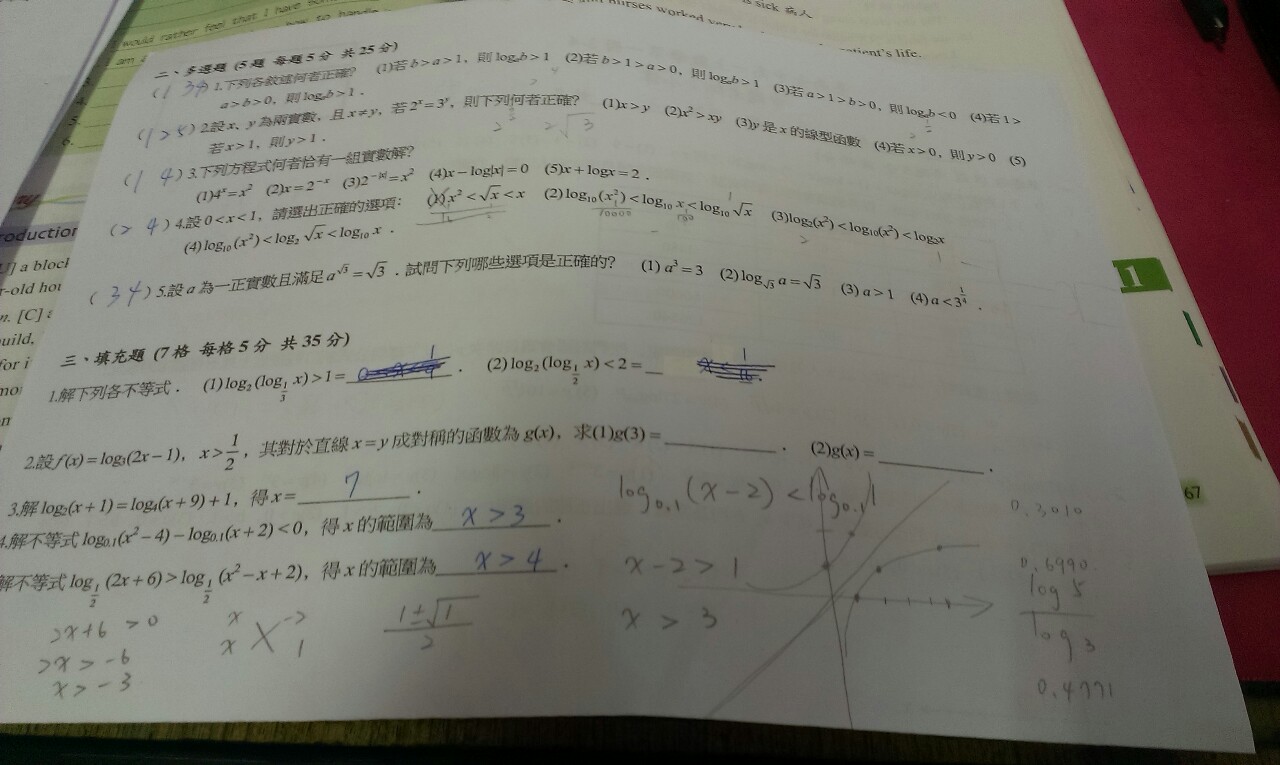 would rather feel that I have
how to handle
am
is sick 病人
and nurses worked
patient's life.
二、多選題 (5題 每題5分 共25分)
( 1 3 4 ) 1.下列各敘述何者正確? (1)若b>a>1,則logₐb>1 (2)若b>1>a>0,則logₐb>1 (3)若a>1>b>0,則logₐb<0 (4)若1>
a>b>0,則logₐb>1.
( 1 2 5 ) 2.設x、y為兩實數,且x≠y,若2ˣ=3ʸ,則下列何者正確? (1)x>y (2)x²>xy (3)y是x的線型函數 (4)若x>0,則y>0 (5)
若x>1,則y>1.
2 2√3
( 1 4 ) 3.下列方程式何者恰有一組實數解?
(1)4ˣ=x² (2)x=2⁻ˣ (3)2^(-|x|)=x² (4)x-log|x|=0 (5)x+logx=2.
( 2 4 ) 4.設0<x<1,請選出正確的選項: (1)x²<√x<x (2)log₁₀(x²)<log₁₀x<log₁₀√x (3)log₂(x²)<log₁₀(x²)<log₂x
(4)log₁₀(x²)<log₂√x<log₁₀x.
( 3 4 ) 5.設a為一正實數且滿足a^√3=√3.試問下列哪些選項是正確的? (1)a³=3 (2)log_√3 a=√3 (3)a>1 (4)a<3^(1/4).
三、填充題 (7格 每格5分 共35分)
1.解下列各不等式. (1)log₂(log_(1/3) x)>1=____. (2)log₂(log_(1/2) x)<2=____
2.設f(x)=log₃(2x-1),x>1/2,其對於直線x=y成對稱的函數為g(x),求(1)g(3)=____. (2)g(x)=____.
3.解log₂(x+1)=log₄(x+9)+1,得x= 7 .
4.解不等式log₀.₁(x²-4)-log₀.₁(x+2)<0,得x的範圍為 x>3 .
解不等式log_(1/2)(2x+6)>log_(1/2)(x²-x+2),得x的範圍為 x>4 .
log₀.₁(x-2)<log₀.₁1
x-2>1
x > 3
2x+6 >0
2x > -6
x > -3
x -2
x 1
(1±√1)/2
0.3010
0.6990
log 5
log 3
0.4771
roduction
] a block
n. [C]
uild,
for i
1
67